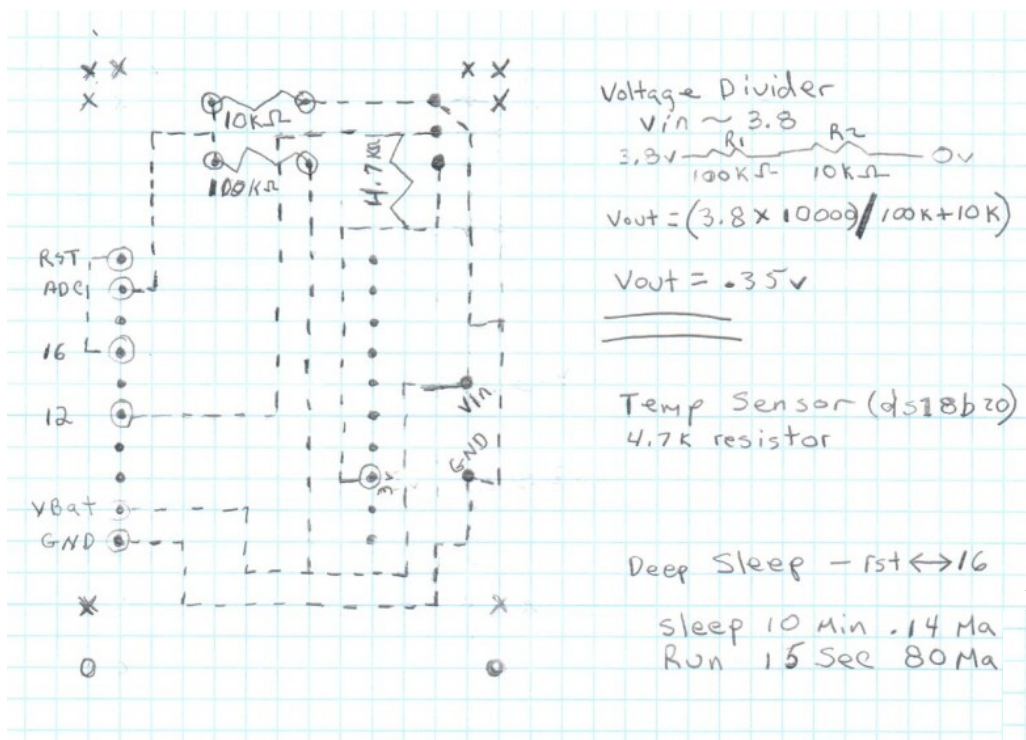 10KΩ
100KΩ
4.7KΩ
RST
ADC
16
12
VBat
GND
Vin
GND
3v
Voltage Divider
Vin ~ 3.8
R1 R2
3.8v 0v
100KΩ 10KΩ
Vout = (3.8 x 10000)/100K+10K)
Vout = .35v
Temp Sensor (ds18b20)
4.7K resistor
Deep Sleep - rst ↔ 16
Sleep 10 Min .14 Ma
Run 15 Sec 80 Ma